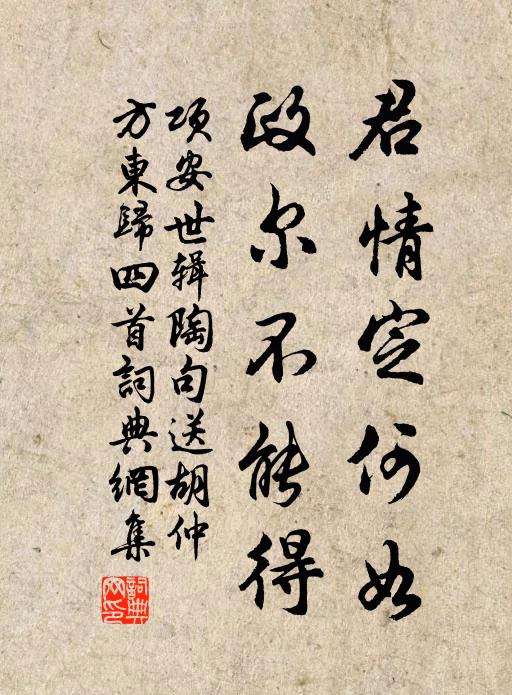 君情定何如
政尔不能得
项安世辑陶句送胡仲
方東歸四首詞典網集
詞典網印